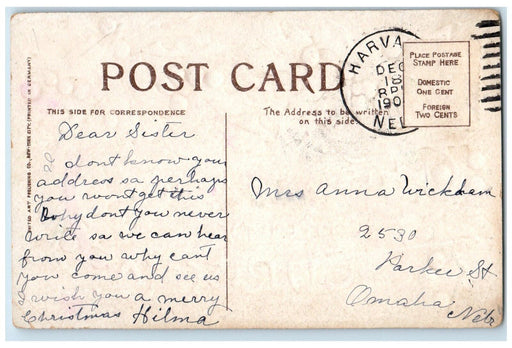 POST CARD
THIS SIDE FOR CORRESPONDENCE
The Address to be written
on this side.
HARVA
DEC
18
190
NEB
PLACE POSTAGE
STAMP HERE
DOMESTIC
ONE CENT
FOREIGN
TWO CENTS
Dear Sister
dont know your
address so perhaps
you wont get this
Why dont you never
write so we can hear
from you why cant
you come and see us
I wish you a merry
Christmas Hilma
Mrs Anna Wickham
2530
Parker St
Omaha
Nebr
UNITED ART PUBLISHING CO., NEW YORK CITY (PRINTED IN GERMANY)